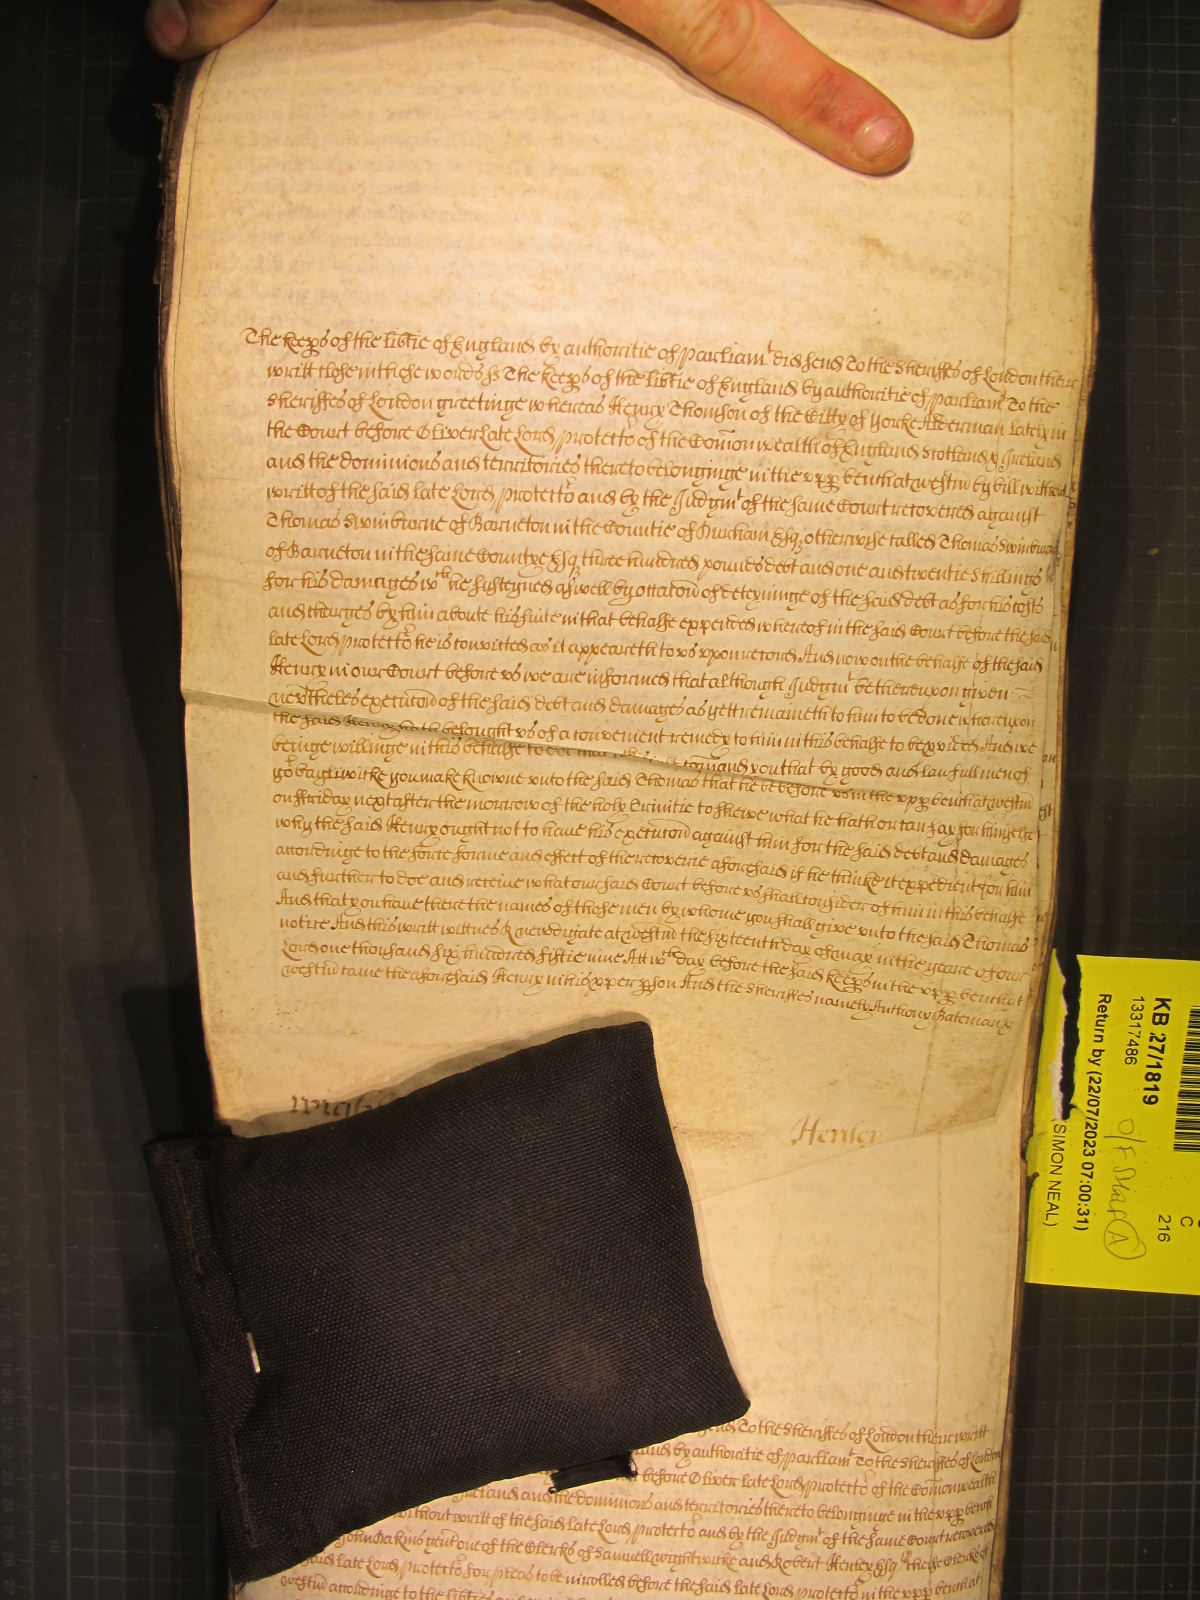 The keeps of the libtie of England by authoritie of parliamt did send To the Sheriffes of London their
writt close in these words ss The keeps of the libtie of England by authoritie of parliamt To the
Sheriffes of London greetinge whereas Henry Thomson of the Citty of Yorke Alderman lately in
the Court before Oliver late Lord protector of the Comonwealth of England Scotland & Ireland
and the dominions and territories thereto belonginge in the upp bench at westm by bill without
writt of the said late Lord protector and by the Judgmt of the same Court recovered against
Thomas Swinburne of Barneton in the Countie of Durham Esq otherwise called Thomas Swinburne
of Barneton in the same Countye Esq three hundred pounds debt and one and twentie shillings
for his damages wch he susteyned aswell by occation of deteyninge of the said debt as for his costs
and charges by him aboute his suite in that behalfe expended whereof in the said Court before the said
late Lord protector he is convicted as it appeareth to us upon record And now on the behalfe of the said
Henry in our Court before us we are informed that although Judgmt be thereupon given
nevtheles execucon of the said debt and damages as yett remaineth to him to be done whereupon
the said Henry hath besought us of a convenient remedy to him in this behalfe to be pvided And we
beinge willinge in this behalfe to doe that comand you that by good and lawfull men of
yor bayliwicke you make knowne unto the said Thomas that he be before us in the upp bench at westm
on ffriday next after the morrow of the holy Trinitie to shewe what he hath or can say for himselfe
why the said Henry ought not to have his execucon against him for the said debt and damages
accordinge to the force forme and effect of the recoverie aforesaid if he thinke it expedient for him
and further to doe and receive what our said Court before us shall consider of him in this behalfe
And that you have there the names of those men by whome you shall give unto the said Thomas
notice And this writt wittnes R Newdigate at westm the sixteenth day of may in the yeare of our
Lord one thousand six hundred fiftie nine At wch day before the said keeps in the upp bench at
westm came the aforesaid Henry in his pper pson And the Sheriffes namely Anthony Bateman &
Henley
To the Sheriffes of London their writt
and by authoritie of parliamt To the Sheriffes of London
before Oliver late Lord protector of the Comonwealth
and the dominions and territories thereto belonginge in the upp bench
without writt of the said late Lord protector and by the Judgmt of the same Court recovered
John Dakins gent one of the Clerks of Samuell Wightwicke and Robert Henley Esq
said late Lord protector for pleas to be inrolled before the said late Lord protector in the upp bench at
westm accordinge to the liberties
KB 27/1819
13317486
Return by (22/07/2023 07:00:31)
(SIMON NEAL)
C
216
A